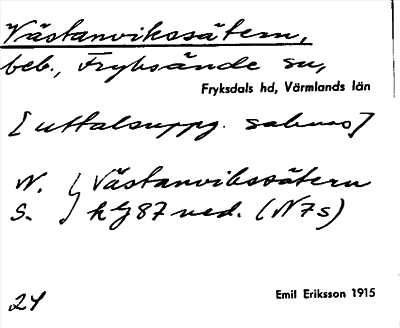 Västanvikssätern,
beb., Fryksände sn,
Fryksdals hd, Värmlands län
[uttalsuppg. saknas]
N. } Västanvikssätern
S. } kG87 ned. (N7s)
24
Emil Eriksson 1915